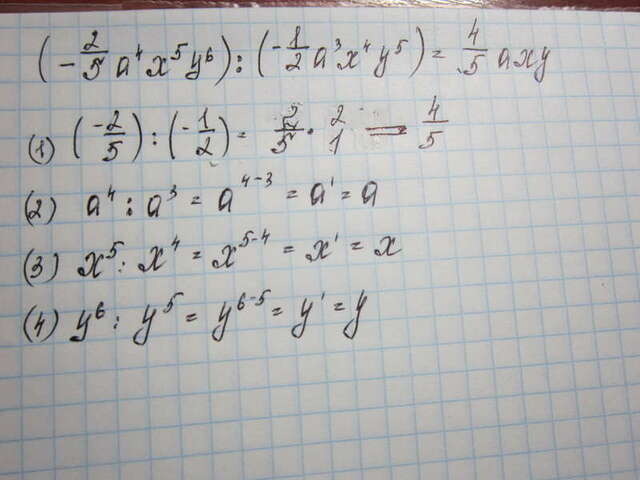 (-2/5 a⁴x⁵y⁶) : (-1/2 a³x⁴y⁵) = 4/5 axy
(1) (-2/5) : (-1/2) = 2/5 · 2/1 = 4/5
(2) a⁴ : a³ = a⁴⁻³ = a¹ = a
(3) x⁵ : x⁴ = x⁵⁻⁴ = x¹ = x
(4) y⁶ : y⁵ = y⁶⁻⁵ = y¹ = y